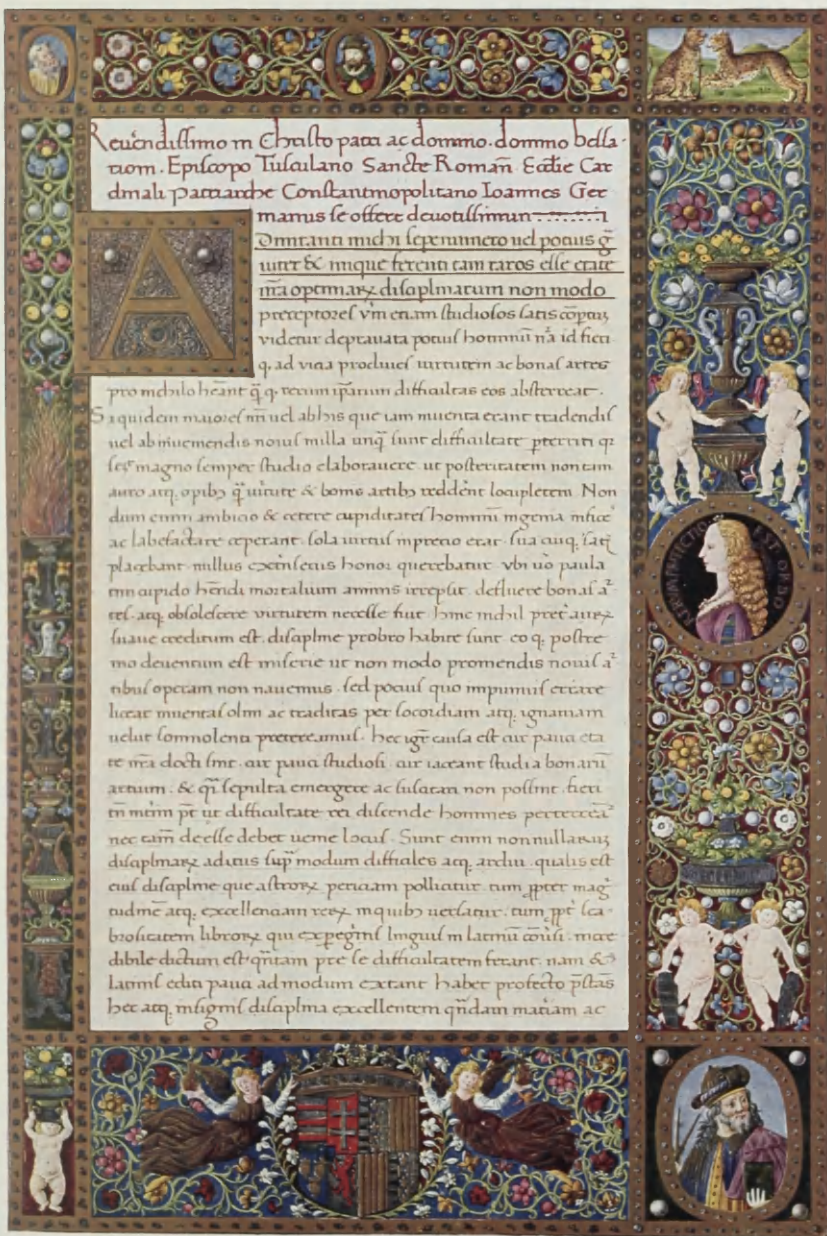 Reuendissimo in Christo patri ac domino. domino bessa-
rioni. Episcopo Tusculano Sancte Roman̄ Ecclie Car
dinali Patriarche Constantinopolitano Ioannes Ger
manus se offert deuotissimum
A
Dmiranti michi sepenumero uel potius gͣ
uiter & inique ferenti tam raros esse etate
nr̄a optimaꝝ disciplinarum non modo
preceptores vm̄ etiam studiosos satis
videtur deprauata potius hominū nͣa id fieri
q. ad uitia procliues uirtutem ac bonas artes
pro nichilo heant q̄ q. rerum ip̄arum difficultas eos absterreat.
Siquidem maiores nr̄i uel ab his que iam inuenta erant tradendis
uel ab inuemendis nouis nulla unq̄ sunt difficultate pterriti
magno semper studio elaborauere ut posteritatem non tam
auro atq. opibꝫ q̄ uirtute & bonis artibꝫ reddent locupletem. Non
dum enim ambitio & cetere cupiditates hominū ingenia inficeͤ
ac labefactare ceperant. sola uirtus in precio erat. sua cuiq. satis
placebant nullus extrinsecus honor querebatur. vbi uo paula
tim cupido hendi mortalium animis irrepsit. defluere bonas aͬ
tes. atq. obsolescere virtutem necesse fuit. hinc nichil preͭ auꝝ
suaue creditum est. discipline probro habite sunt. eo q. postre
mo deuentum est miserie ut non modo promendis nouis aͬ
tibus operam non nauemus. sed potius quo impunius errare
liceat inuentas olim ac traditas per socordiam atq. ignauiam
uelut somnolenti pretereamus. hec igr̄ causa est cur pauci eta
te nr̄a docti sint. cur pauci studiosi. cur iaceant studia bonarū
artium. & qͥ sepulta emergere ac suscitari non possint. fieri
tn̄ int̄im pt̄ ut difficultate rei discende homines perterreaͭ
nec tam̄ deesse debet uenie locus. Sunt enim non nullarum
disciplinaꝝ aditus supͣ modum difficiles atq. ardui. qualis est
eius discipline que astroꝝ periciam pollicitur. tum ꝓpter magͥ
tudinē atq. excellenciam reꝝ in quibꝫ uersatur. tum ꝓpt̄ sca-
brositatem libroꝝ qui ex peg̾nis linguis in latinū cōu̾si. incre
dibile dictum est. qn̄tam pre se difficultatem ferant. nam &
latinis editi pauci admodum extant. habet profecto p̄stas
hec atq. insignis disciplina excellentem qn̄dam mat̾iam ac
AERUM IMFECTIO EST ORDO